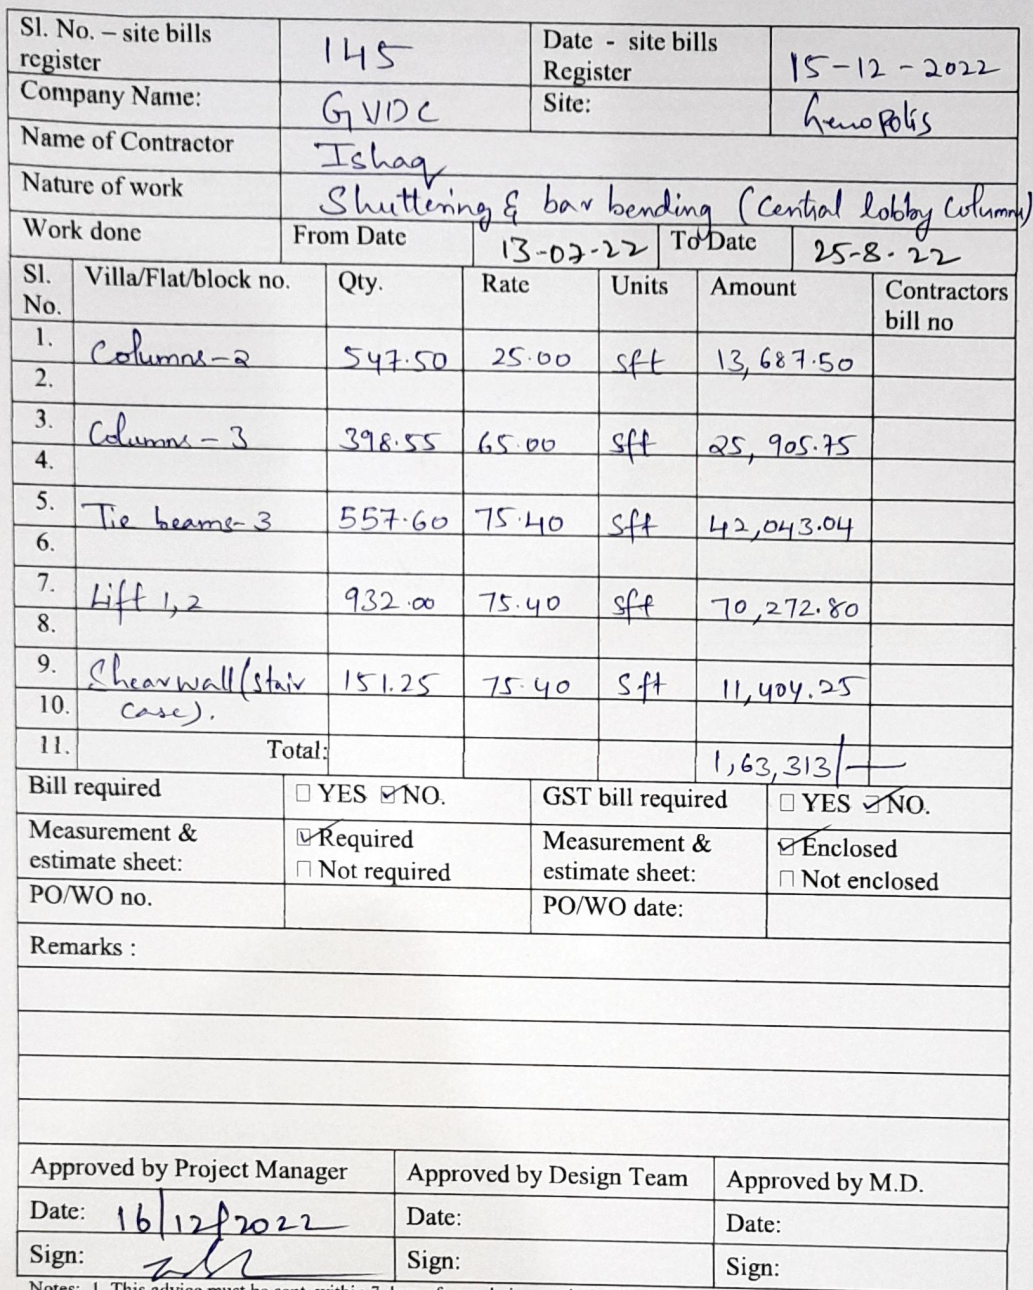 Sl. No. – site bills register 145 Date - site bills Register 15-12-2022
Company Name: GVDC Site: Genopolis
Name of Contractor Ishaq
Nature of work Shuttering & bar bending (Central lobby Columns)
Work done From Date 13-07-22 To Date 25-8-22
Sl. No. Villa/Flat/block no. Qty. Rate Units Amount Contractors bill no
1. Columns-2 547.50 25.00 sft 13,687.50
2.
3. Columns-3 398.55 65.00 sft 25,905.75
4.
5. Tie beams-3 557.60 75.40 sft 42,043.04
6.
7. Lift 1,2 932.00 75.40 sft 70,272.80
8.
9. Shearwall (stair 151.25 75.40 S.ft 11,404.25
10. case).
11. Total: 1,63,313/-
Bill required ☐ YES ☑ NO. GST bill required ☐ YES ☑ NO.
Measurement & estimate sheet: ☑ Required ☐ Not required Measurement & estimate sheet: ☑ Enclosed ☐ Not enclosed
PO/WO no. PO/WO date:
Remarks :
Approved by Project Manager Approved by Design Team Approved by M.D.
Date: 16/12/2022 Date: Date:
Sign: Sign: Sign: